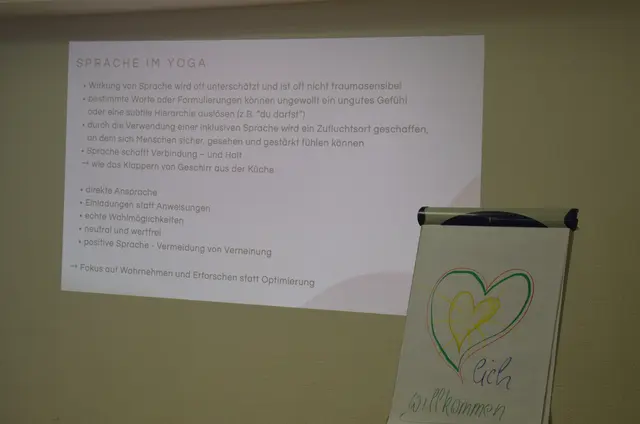 SPRACHE IM YOGA
• Wirkung von Sprache wird oft unterschätzt und ist oft nicht traumasensibel
• bestimmte Worte oder Formulierungen können ungewollt ein ungutes Gefühl
oder eine subtile Hierarchie auslösen (z.B. "du darfst")
• durch die Verwendung einer inklusiven Sprache wird ein Zufluchtsort geschaffen,
an dem sich Menschen sicher, gesehen und gestärkt fühlen können
• Sprache schafft Verbindung – und Halt
→ wie das Klappern von Geschirr aus der Küche
• direkte Ansprache
• Einladungen statt Anweisungen
• echte Wahlmöglichkeiten
• neutral und wertfrei
• positive Sprache - Vermeidung von Verneinung
→ Fokus auf Wahrnehmen und Erforschen statt Optimierung
lich
willkommen